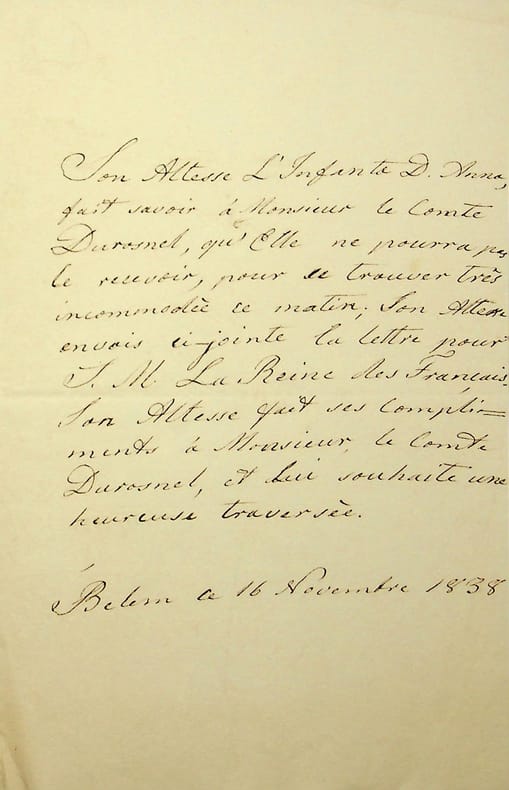 Son Altesse L'Infante D. Anna,
fait savoir à Monsieur le Comte
Durosnel, qu'Elle ne pourra pas
le recevoir, pour se trouver très
incommodée ce matin; Son Altesse
envois ci-jointe la lettre pour
S. M. La Reine des Français.
Son Altesse fait ses compli=
ments à Monsieur le Comte
Durosnel, et Lui souhaite une
heureuse traversée.
Belem ce 16 Novembre 1838